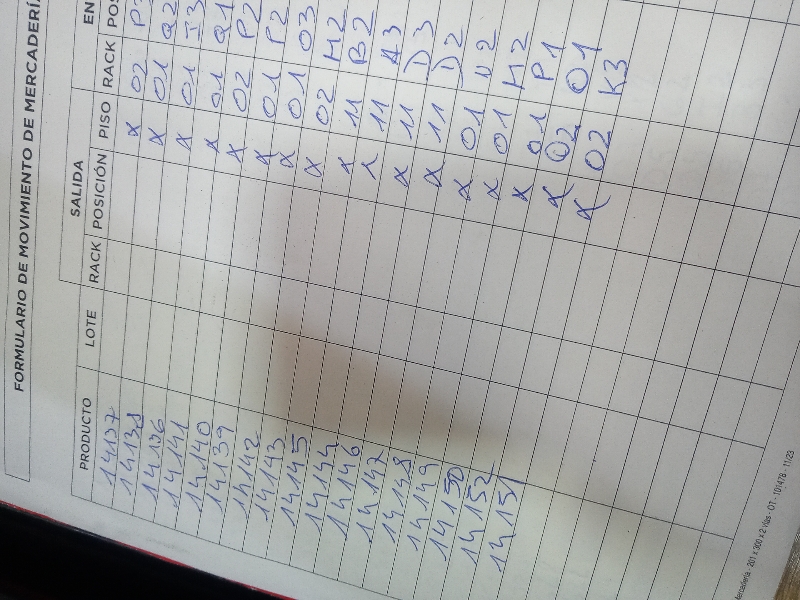 FORMULARIO DE MOVIMIENTO DE MERCADERÍ
SALIDA EN
PRODUCTO LOTE RACK POSICIÓN PISO RACK POS
14137 x 02
14138 x 01 Q2
14136 x 01 I3
14141 x 01 Q1
14140 x 02 P2
14139 x 01 P2
14142 x 01 O3
14143 x 02 H2
14145 x 11 B2
14144 x 11 A3
14146 x 11 D3
14147 x 11 D2
14148 x 01 N2
14149 x 01 H2
14150 x 01 P1
14152 x 02 O1
14151 x 02 K3
201 x 300 x 2 Vías - O1 - 101478 - 11/23